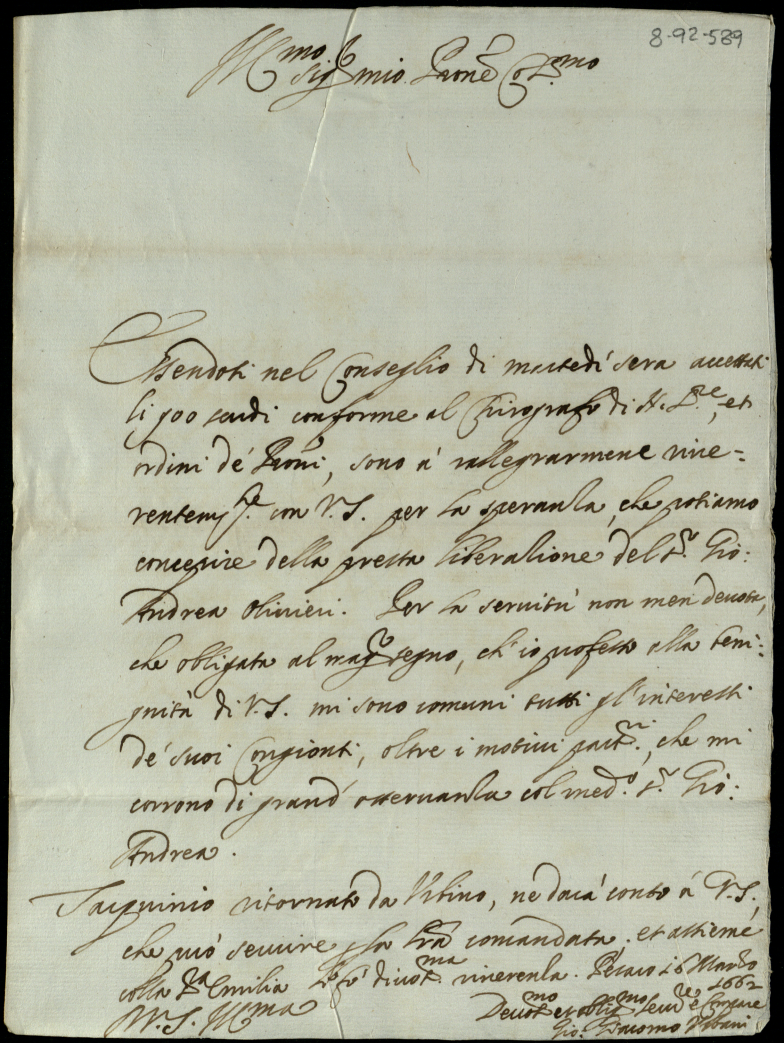 8-92-589
Ill.mo Sig.r mio Pron.e Col.mo
Essendosi nel Conseglio di martedì sera accettati
li 900 scudi conforme al Chirografo di N. S.re, et
ordini de' Proni, sono à rallegrarmene rive=
rentem.te con V.S. per la speranza, che potiamo
concepire della presta liberatione del S.r Gio:
Andrea Olivieri. Per la servitù non men devota,
che obligata al magg.r segno, ch'io professo alla beni=
gnità di V.S. mi sono comuni tutti gl'interessi
de' suoi Congionti, oltre i motivi part.ri, che mi
corrono di grand' osservanza col med.o S.r Gio:
Andrea.
Tarquinio ritornato da Urbino, ne darà conto à V.S.,
che può servire p la l'rà comandata; et assieme
colla S.ra Emilia le fò divot.ma riverenza. Pesaro 16 Marzo
1662
V.S. Ill.ma
Devot.mo et oblig.mo Serv.re e
Gio: Giacomo